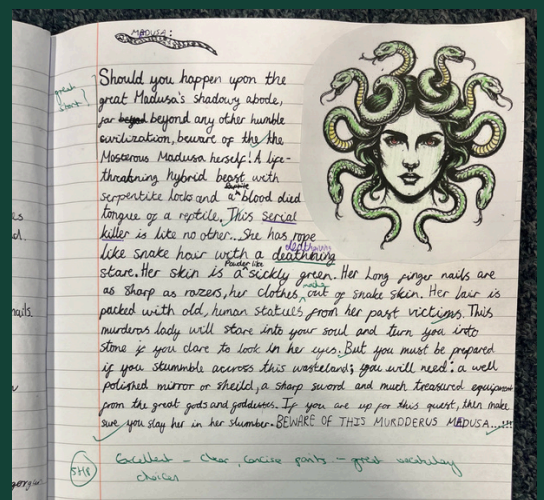 MADUSA:
great
start!
Should you happen upon the
great Madusa's shadowy abode,
far beyond any other humble
civilization, beware of the the
Mosterous Madusa herself! A life-
threatning hybrid beast with
serpentite locks and a blood died
tongue of a reptile. This serial
killer is like no other... She has rope
like snake hair with a deathning
stare. Her skin is a Powder like sickly green. Her long finger nails are
as sharp as razers, her clothes made out of snake skin. Her lair is
packed with old, human statues from her past victims. This
murderas lady will stare into your soul and turn you into
stone if you dare to look in her eyes. But you must be prepared
if you stummble accross this wasteland; you will need: a well
polished mirror or sheild, a sharp sword and much treasured equipment
from the great gods and goddesses. If you are up for this quest, then make
sure you slay her in her slumber. BEWARE OF THIS MURDDERUS MADUSA...!!!
Excellent – clear, concise – great vocabulary
choices